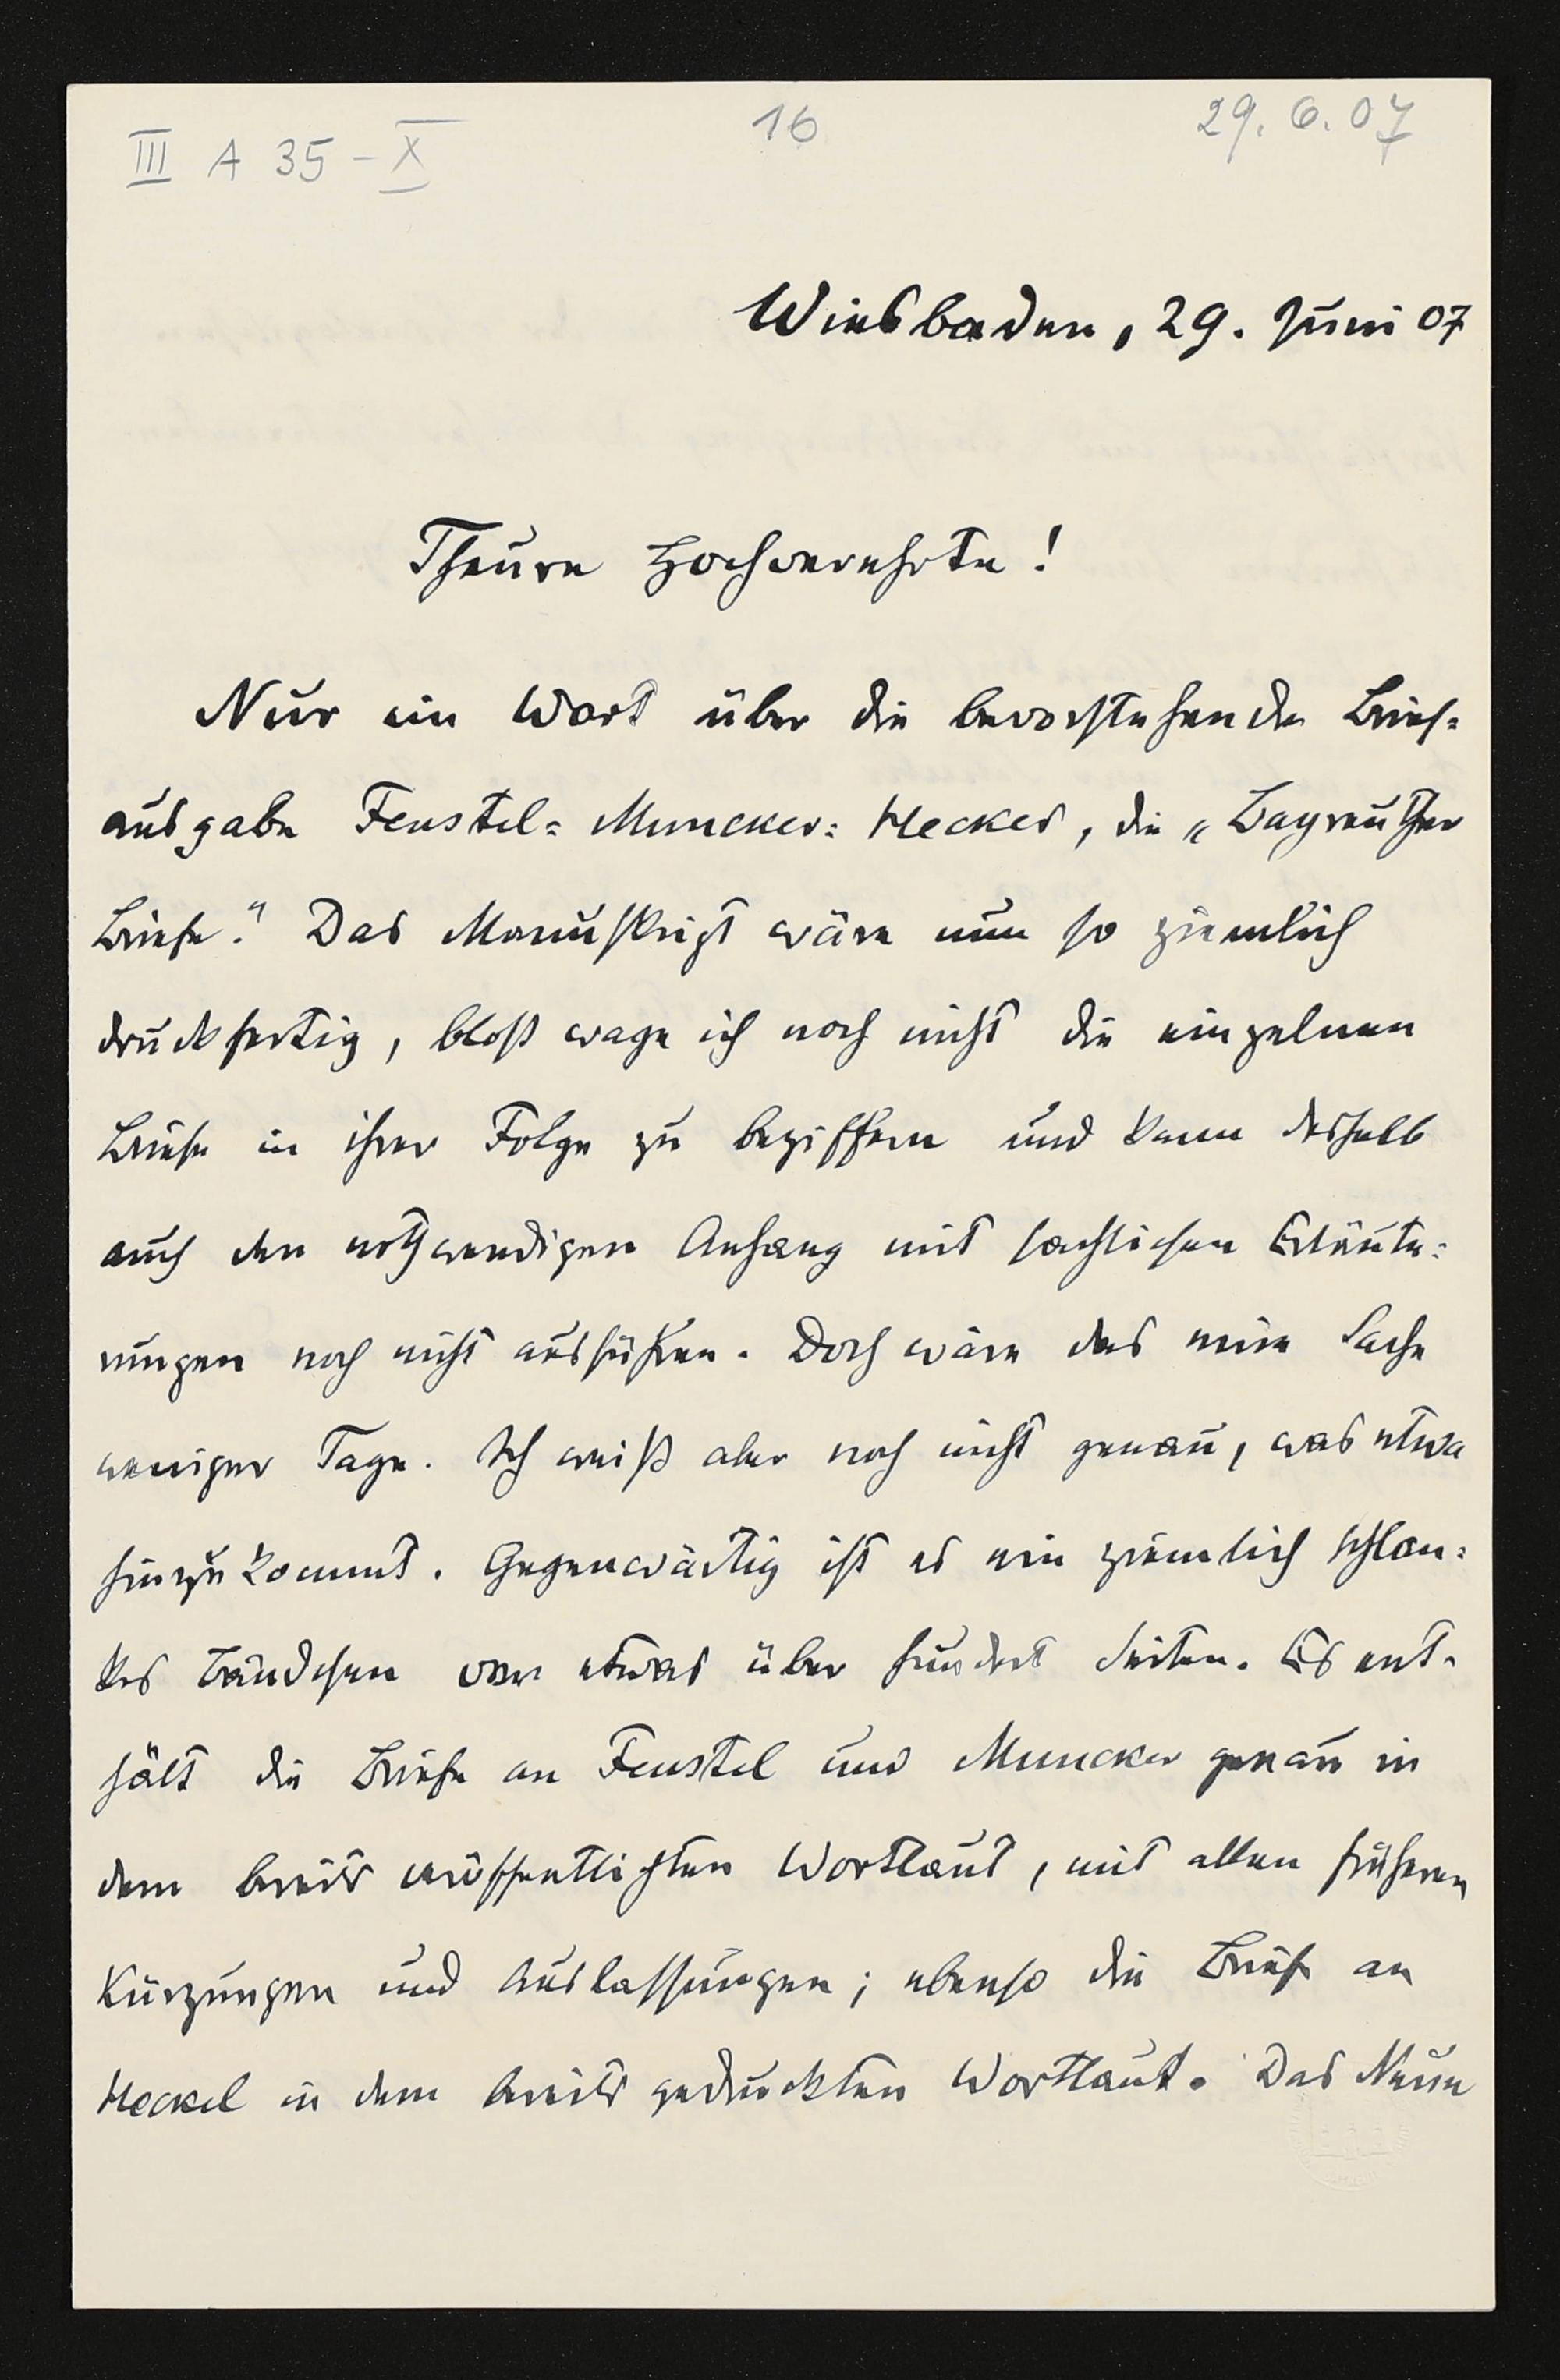 III A 35 - X
16
29. 6. 07
Wiesbaden, 29. Juni 07
Theure Hochverehrte!
Nur ein Wort über die bevorstehende Brief=
ausgabe Feustel= Muncker= Heckel, die „Bayreuther
Briefe." Das Manuskript wäre nun so ziemlich
druckfertig, bloß wage ich noch nicht die einzelnen
Briefe in ihrer Folge zu beziffern und kann deshalb
auch den nothwendigen Anhang mit sachlichen Erläute=
rungen noch nicht ausführen. Doch wäre das eine Sache
weniger Tage. Ich weiß aber noch nicht genau, was etwa
hinzukommt. Gegenwärtig ist es ein ziemlich schlan=
kes Bändchen von etwas über hundert Seiten. Es ent=
hält die Briefe an Feustel und Muncker genau in
dem bereits veröffentlichten Wortlaut, mit allen früheren
Kürzungen und Auslassungen; ebenso die Briefe an
Heckel in dem bereits gedruckten Wortlaut. Das Neue